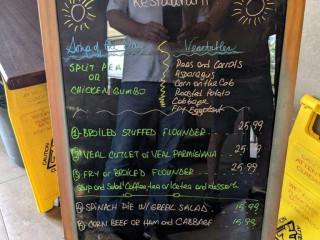 Restaurant
Soup of the Day
Vegetables
SPLIT PEA
OR
CHICKEN GUMBO
Peas and Carrots
Asparagus
Corn on the Cob
Roasted Potato
Cabbage
Fry Eggplant
1 BROILED STUFFED FLOUNDER 25.99
2 VEAL CUTLET or VEAL PARMIGIANA 25.99
3 FRY or BROILED FLOUNDER 25.99
Soup and Salad Coffee, tea or Ice tea and dessert
SPINACH PIE W/ GREEK SALAD 15.99
CORN BEEF OR HAM and CABBAGE 15.99